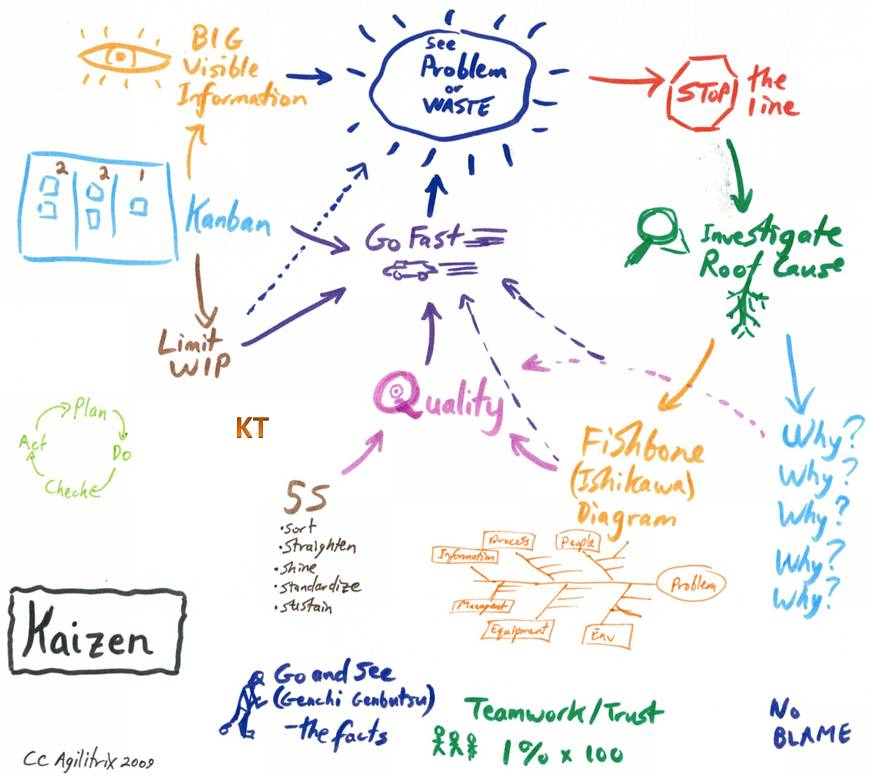 BIG
Visible
Information
see
Problem
or
WASTE
STOP
the
line
2 2 1
Kanban
Go Fast
Investigate
Root Cause
Limit
WIP
KT
Quality
Plan
Do
Checke
Act
5S
•sort
•straighten
•shine
•standardize
•sustain
Fishbone
(Ishikawa)
Diagram
Process
People
Information
Problem
Equipment
Env
Why?
Why?
Why?
Why?
Why?
Kaizen
Go and See
(Genchi Genbutsu)
-the facts
Teamwork/Trust
1% x 100
No
BLAME
CC Agilitrix 2009